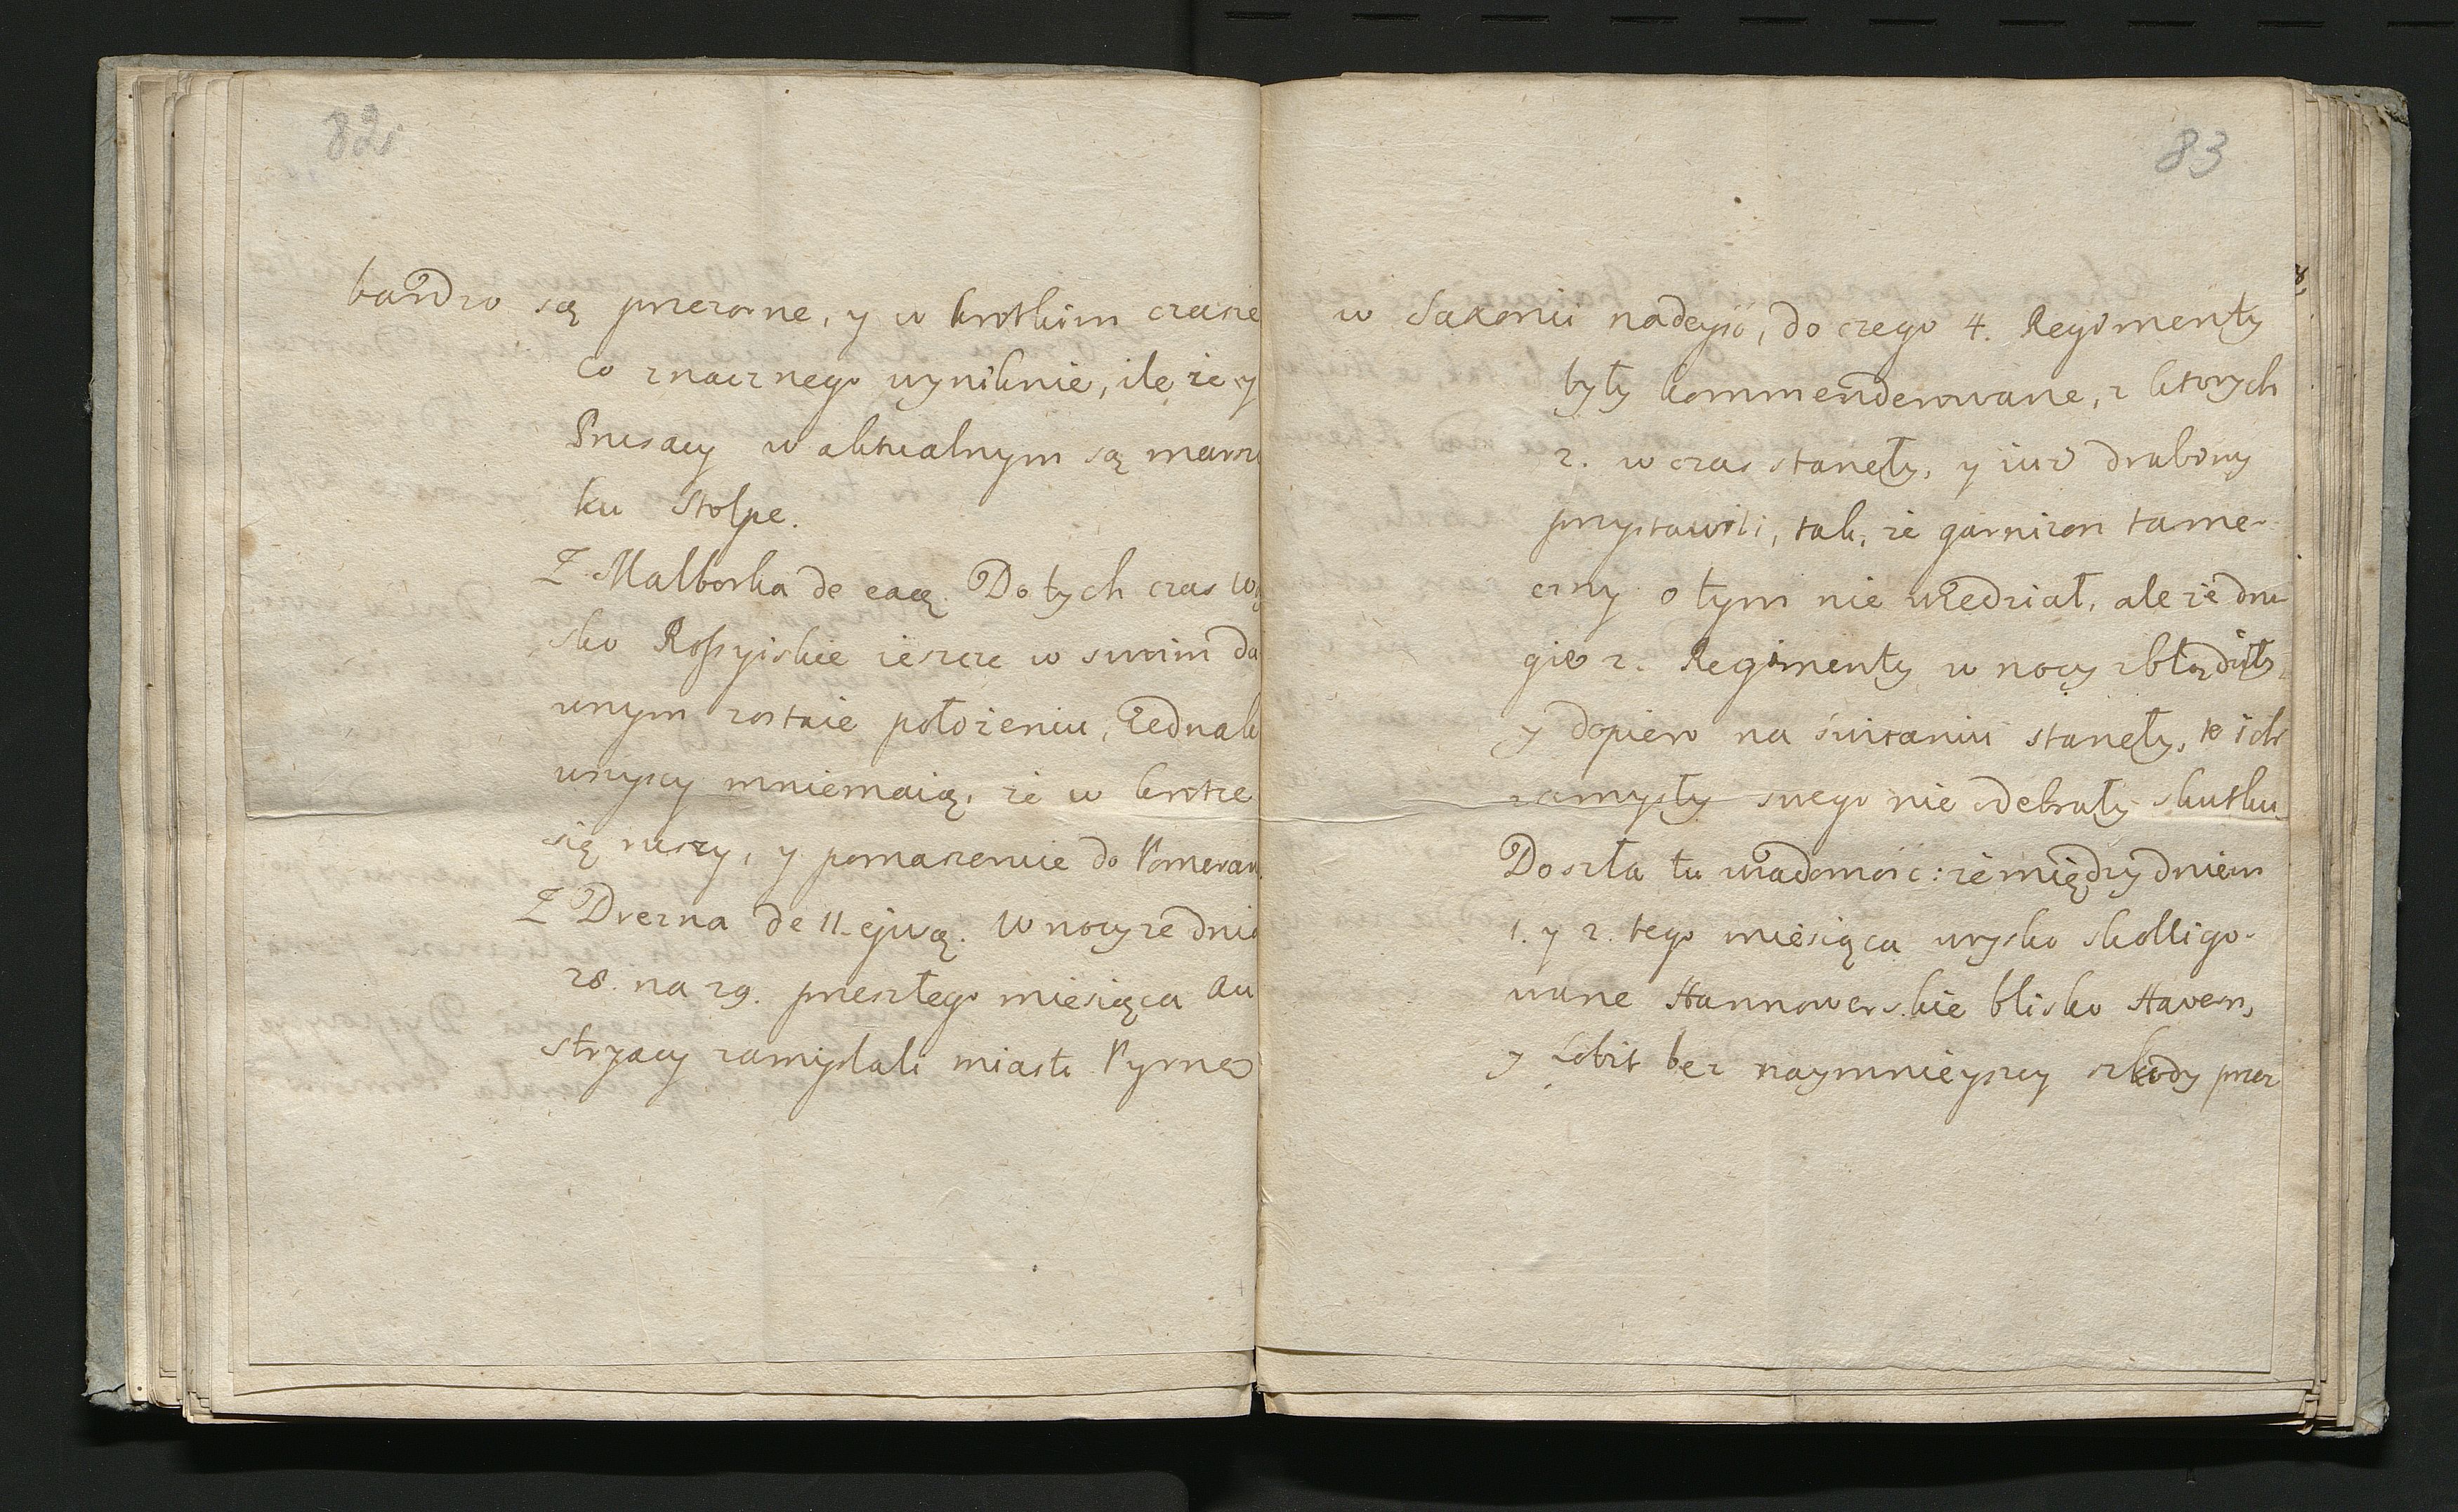 82
bardzo są przezorne, y w krotkim czasie
co znacznego wyniknie, ile że y
Prusacy w aktualnym są marszu
ku Stolpe.
Z Malborka de eaą. Do tych czas woy
sko Rossyiskie ieszcze w swoim da
wnym zostaie położeniu, iednak
wszyscy mniemaią, że w krotce
się ruszy, y pomaszeruie do Pomeran.
Z Drezna de 11. ejusą. W nocy ze dnia
28. na 29. przeszłego miesiąca Au
stryacy zamyslali miasto Pyrnę
83
w Saxonii nadeyść, do czego 4. Regimenty
były kommenderowane, z ktorych
2. w czas stanęły, y iuż drabiny
przystawili, tak, że garnizon tame-
czny o tym nie wiedział, ale że dru-
gie 2. Regimenty w nocy zbłądziły,
y dopiero na świtaniu stanęły, te ich
zamysły swego nie odebrały skutku.
Doszła tu wiadomość: że między dniem
1. y 2. tego miesiąca woysko skolligo-
wane Hannowerskie blisko Haven,
y Lobit bez naymnieyszey szkody przez